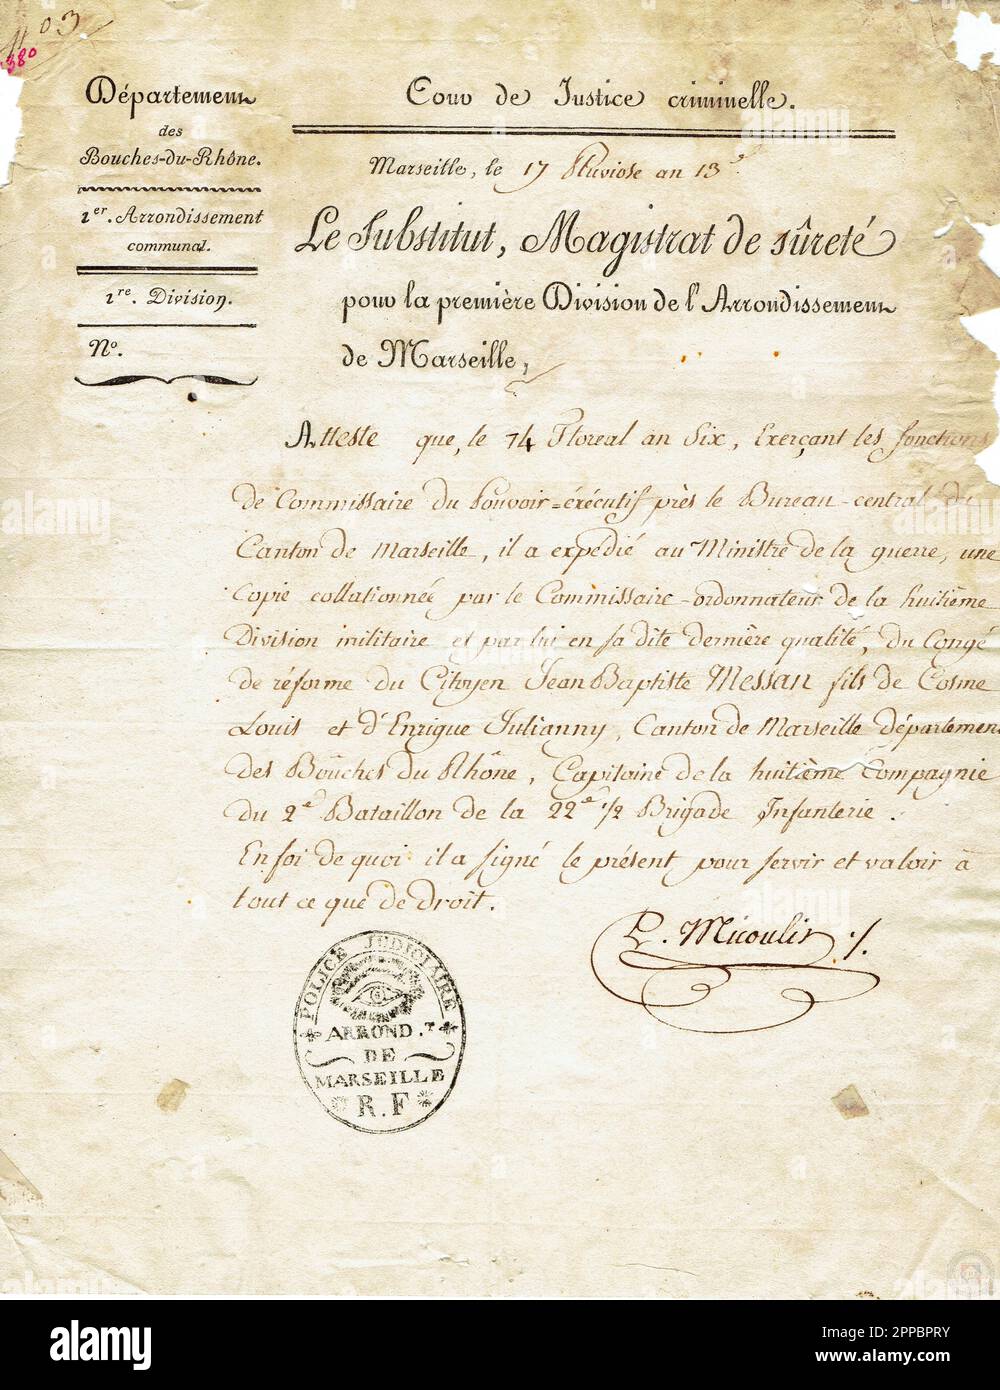 1103
380
Département
des
Bouches-du-Rhône.
1er. Arrondissement
communal.
1re. Division.
No.
Cour de Justice criminelle.
Marseille, le 17 Pluviose an 13e.
Le Substitut, Magistrat de sûreté
pour la première Division de l'Arrondissement
de Marseille,
Atteste que, le 14 Floreal an Six, Exerçant les fonctions
de Commissaire du Pouvoir=éxécutif près le Bureau-central du
Canton de Marseille, il a expédié au Ministre de la guerre, une
Copie collationnée par le Commissaire-ordonnateur de la huitième
Division militaire et par lui en sa dite dernière qualité, du Congé
de réforme du Citoyen Jean Baptiste Messan fils de Cosme
Louis et d'Enrigue Julianny, Canton de Marseille département
des Bouches du Rhône, Capitaine de la huitième Compagnie
du 2e Bataillon de la 22e 1/2 Brigade Infanterie.
En foi de quoi il a signé le présent pour servir et valoir à
tout ce que de droit.
P. Micoulin
POLICE JUDICIAIRE
ARROND.T
DE
MARSEILLE
R.F
alamy
Image ID: 2PPBPRY
www.alamy.com